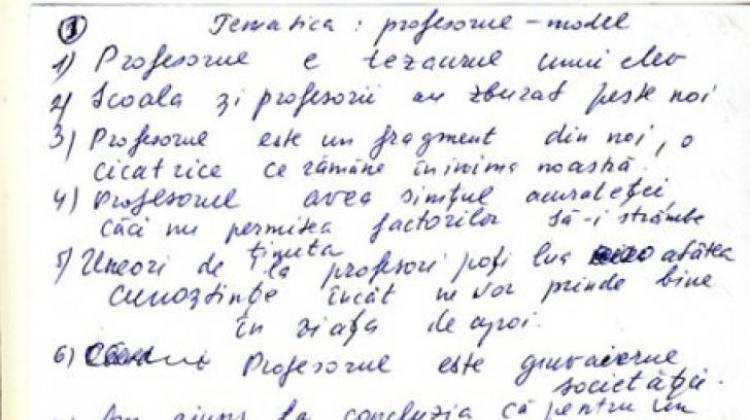 ① Tematica: profesorul - model
1) Profesorul e tezaurul unui elev
2) Școala și profesorii au zburat peste noi
3) Profesorul este un fragment din noi, o
cicatrice ce rămâne în inima noastră.
4) Profesorul avea simțul acurateței,
căci nu permitea factorilor să-i strâmbe
ținuta
5) Uneori de la profesori poți lua atâtea
cunoștințe încât ne vor prinde bine
în viața de apoi.
6) Profesorul este guvernerul
societății.
Am ajuns la concluzia că pentru un